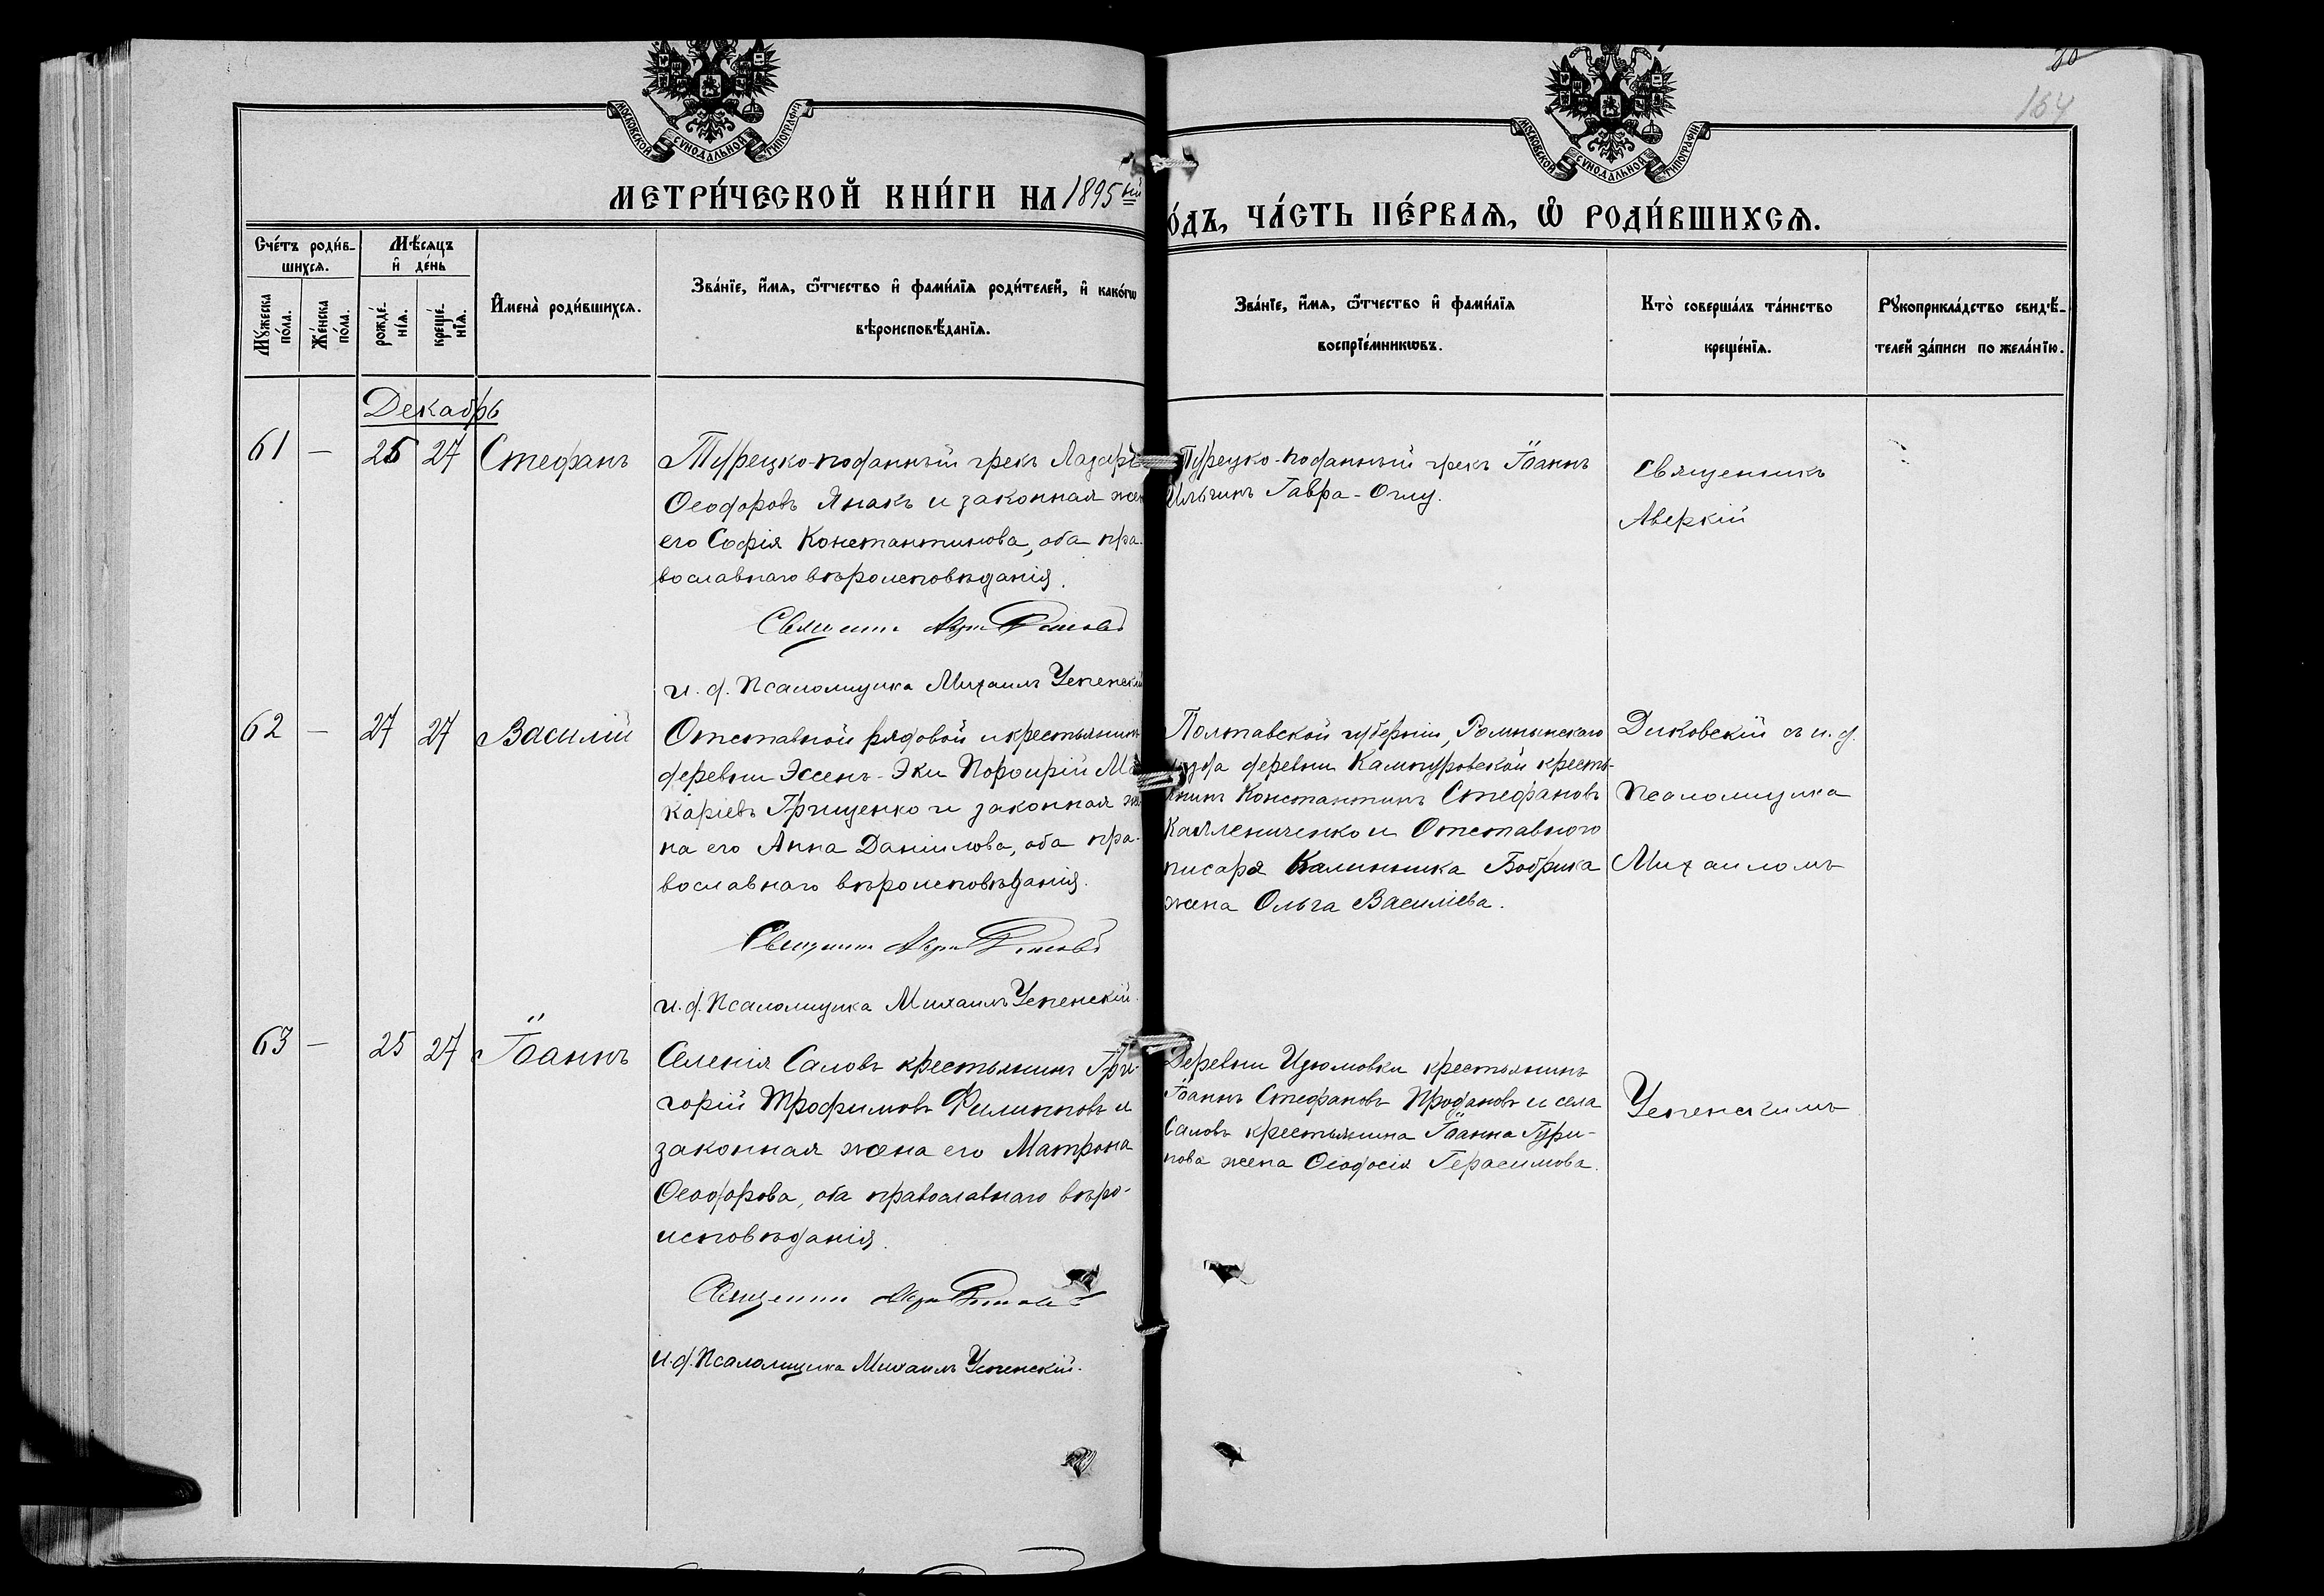 МОСКОВСКОЙ СѴНОДАЛЬНОЙ ТИПОГРАФІИ
МОСКОВСКОЙ СѴНОДАЛЬНОЙ ТИПОГРАФІИ
70
164
МЕТРИ́ЧЕСКОЙ КНИ́ГИ НА 1895ый
О́ДЪ, ЧА́СТЬ ПЕ́РВАѦ, Ѽ РОДИ́ВШИХСѦ.
Сче́тъ роди́в-
шихсѧ.
Мꙋ́жеска по́ла.
Же́нска по́ла.
Мѣ́сѧцъ
и҆ де́нь
рожде́-нїѧ.
креще́-нїѧ.
И҆мена̀ роди́вшихсѧ.
Зва́нїе, и҆́мѧ, ѻ҆́тчество и҆ фами́лїѧ роди́телей, и҆ како́гѡ
вѣроисповѣ́данїѧ.
Зва́нїе, и҆́мѧ, ѻ҆́тчество и҆ фами́лїѧ
воспрїе́мникѡвъ.
Кто̀ соверша́лъ та́инство
креще́нїѧ.
Рꙋкоприкла́дство свидѣ́-
телей за́писи по жела́нїю.
Декабрь
61 — 25 27 Стефанъ
Турецко-поданный грекъ Лазарь
Ѳеодоровъ Янакъ и законная жен
его Софія Константинова, оба пра-
вославнаго вѣроисповѣданія.
Священн.
и. д. Псаломщика Михаилъ Успенскій
Турецко-поданный грекъ Іоаннъ
Ильинъ Гавра-Оглу.
Священникъ
Аверкій
62 — 27 27 Василій
Отставной рядовой и крестьянинъ
деревни Эссенъ-Эки Порфирій Ма
каріевъ Грищенко и законная же
на его Анна Даніилова, оба пра-
вославнаго вѣроисповѣданія.
Священник
и. д. Псаломщика Михаилъ Успенскій.
Полтавской губерніи, Роменскаго
уѣзда деревни крестъ-
янинъ Константинъ Стефановъ
и Отставного
писаря Калинника Бобрика
жена Ольга Василіева.
Диковскій съ и. д.
Псаломщика
Михаиломъ
63 — 25 27 Іоаннъ
Селенія Саловъ крестьянинъ Гри-
горій Трофимовъ Филипповъ и
законная жена его Матрона
Ѳеодорова, оба православнаго вѣро-
исповѣданія.
Священник
и. д. Псаломщика Михаилъ Успенскій.
Деревни Изюмовки крестьянинъ
Іоаннъ Стефановъ Продановъ и села
Саловъ крестьянина Іоанна Гури-
нова жена Ѳеодосія Герасимова.
Успенскимъ